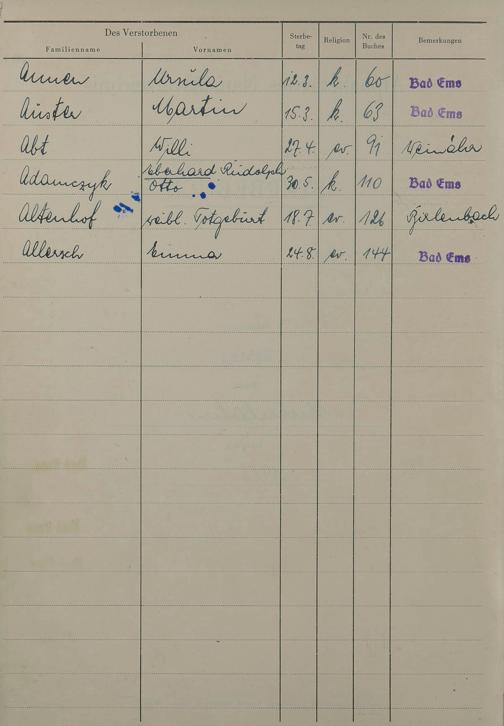 Des Verstorbenen
Familienname Vornamen Sterbe-tag Religion Nr. des Buches Bemerkungen
Annen Ursula 12.3. k. 60 Bad Ems
Auster Martin 15.3. k. 63 Bad Ems
Abt Willi 27.4. ev. 91 Weinähr
Adamczyk Eberhard Rudolph Otto 30.5. k. 110 Bad Ems
Altenhof weibl. Totgeburt 18.7 ev. 126
Allersch Emma 24.8. ev. 144 Bad Ems